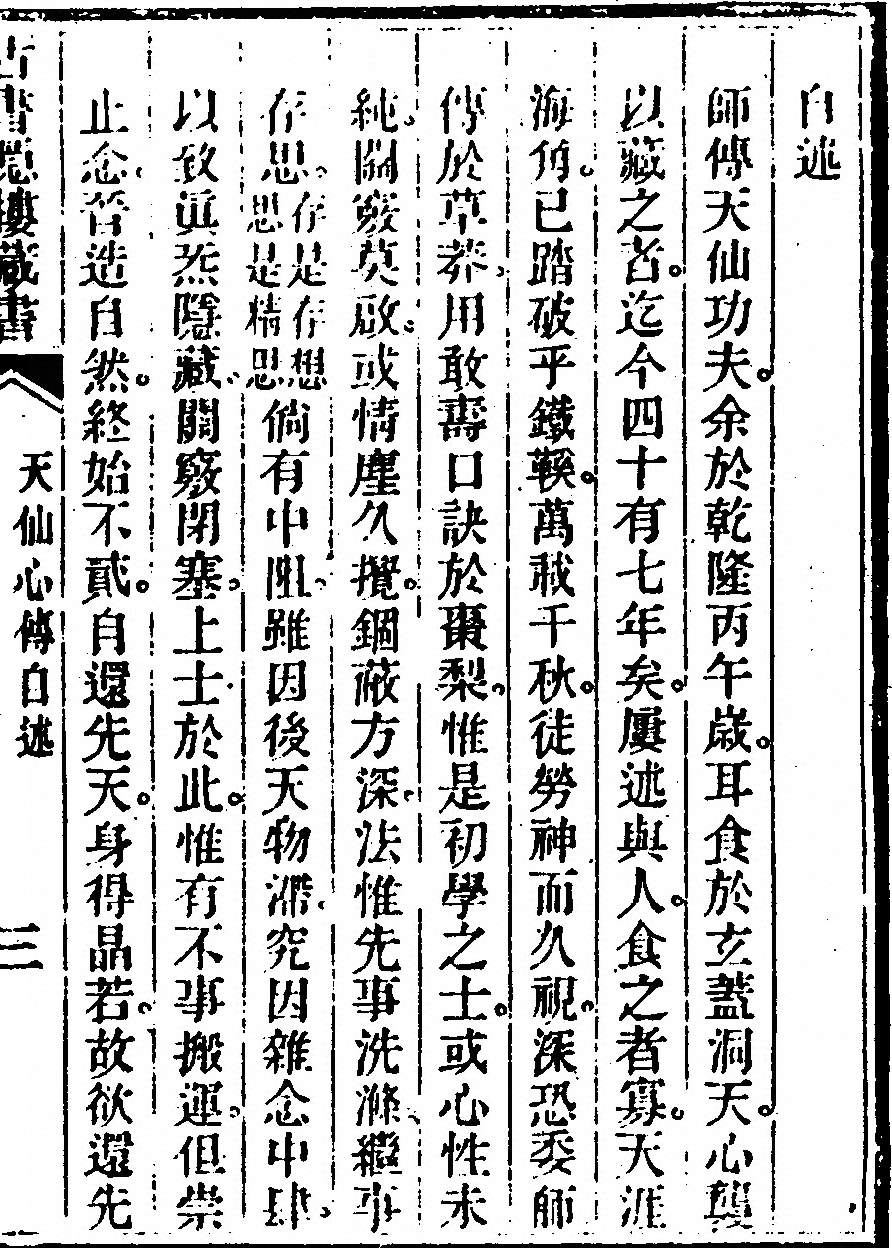 自述
師傳天仙功夫。余於乾隆丙午歲。耳食於玄蓋洞天。心襲
以藏之者。迄今四十有七年矣。屢述與人。食之者寡。天涯
海角。已踏破乎鐵鞵。萬載千秋。徒勞神而久視。深恐委師
傳於草莽。用敢壽口訣於棗梨。惟是初學之士。或心性未
純。關竅莫啟。或情塵久攪。錮蔽方深。法惟先事洗滌。繼事
存思。存是存想思是精思倘有中阻。雖因後天物滯。究因雜念中肆。
以致真炁隱藏。關竅閉塞。上士於此。惟有不事搬運。但崇
止念。誓造自然。終始不貳。自還先天。身得晶若。故欲還先
古書隱樓藏書
天仙心傳自述
三